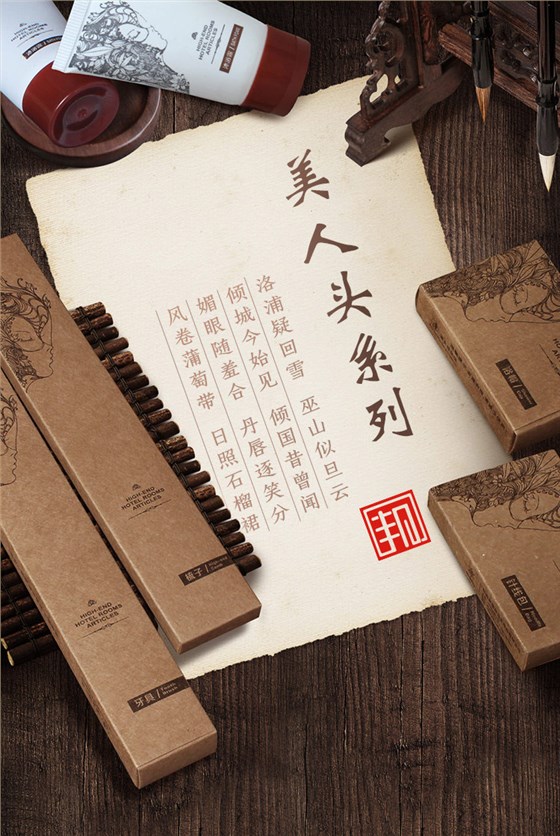 美人头系列
洛浦疑回雪 巫山似旦云
倾城今始见 倾国昔曾闻
媚眼随羞合 丹唇逐笑分
风卷蒲萄带 日照石榴裙
HIGH-END
HOTEL ROOMS
ARTICLES
HIGH-END
HOTEL ROOMS
ARTICLES
梳子
HIGH-END
HOTEL ROOMS
ARTICLES
牙具
浴帽
针线包